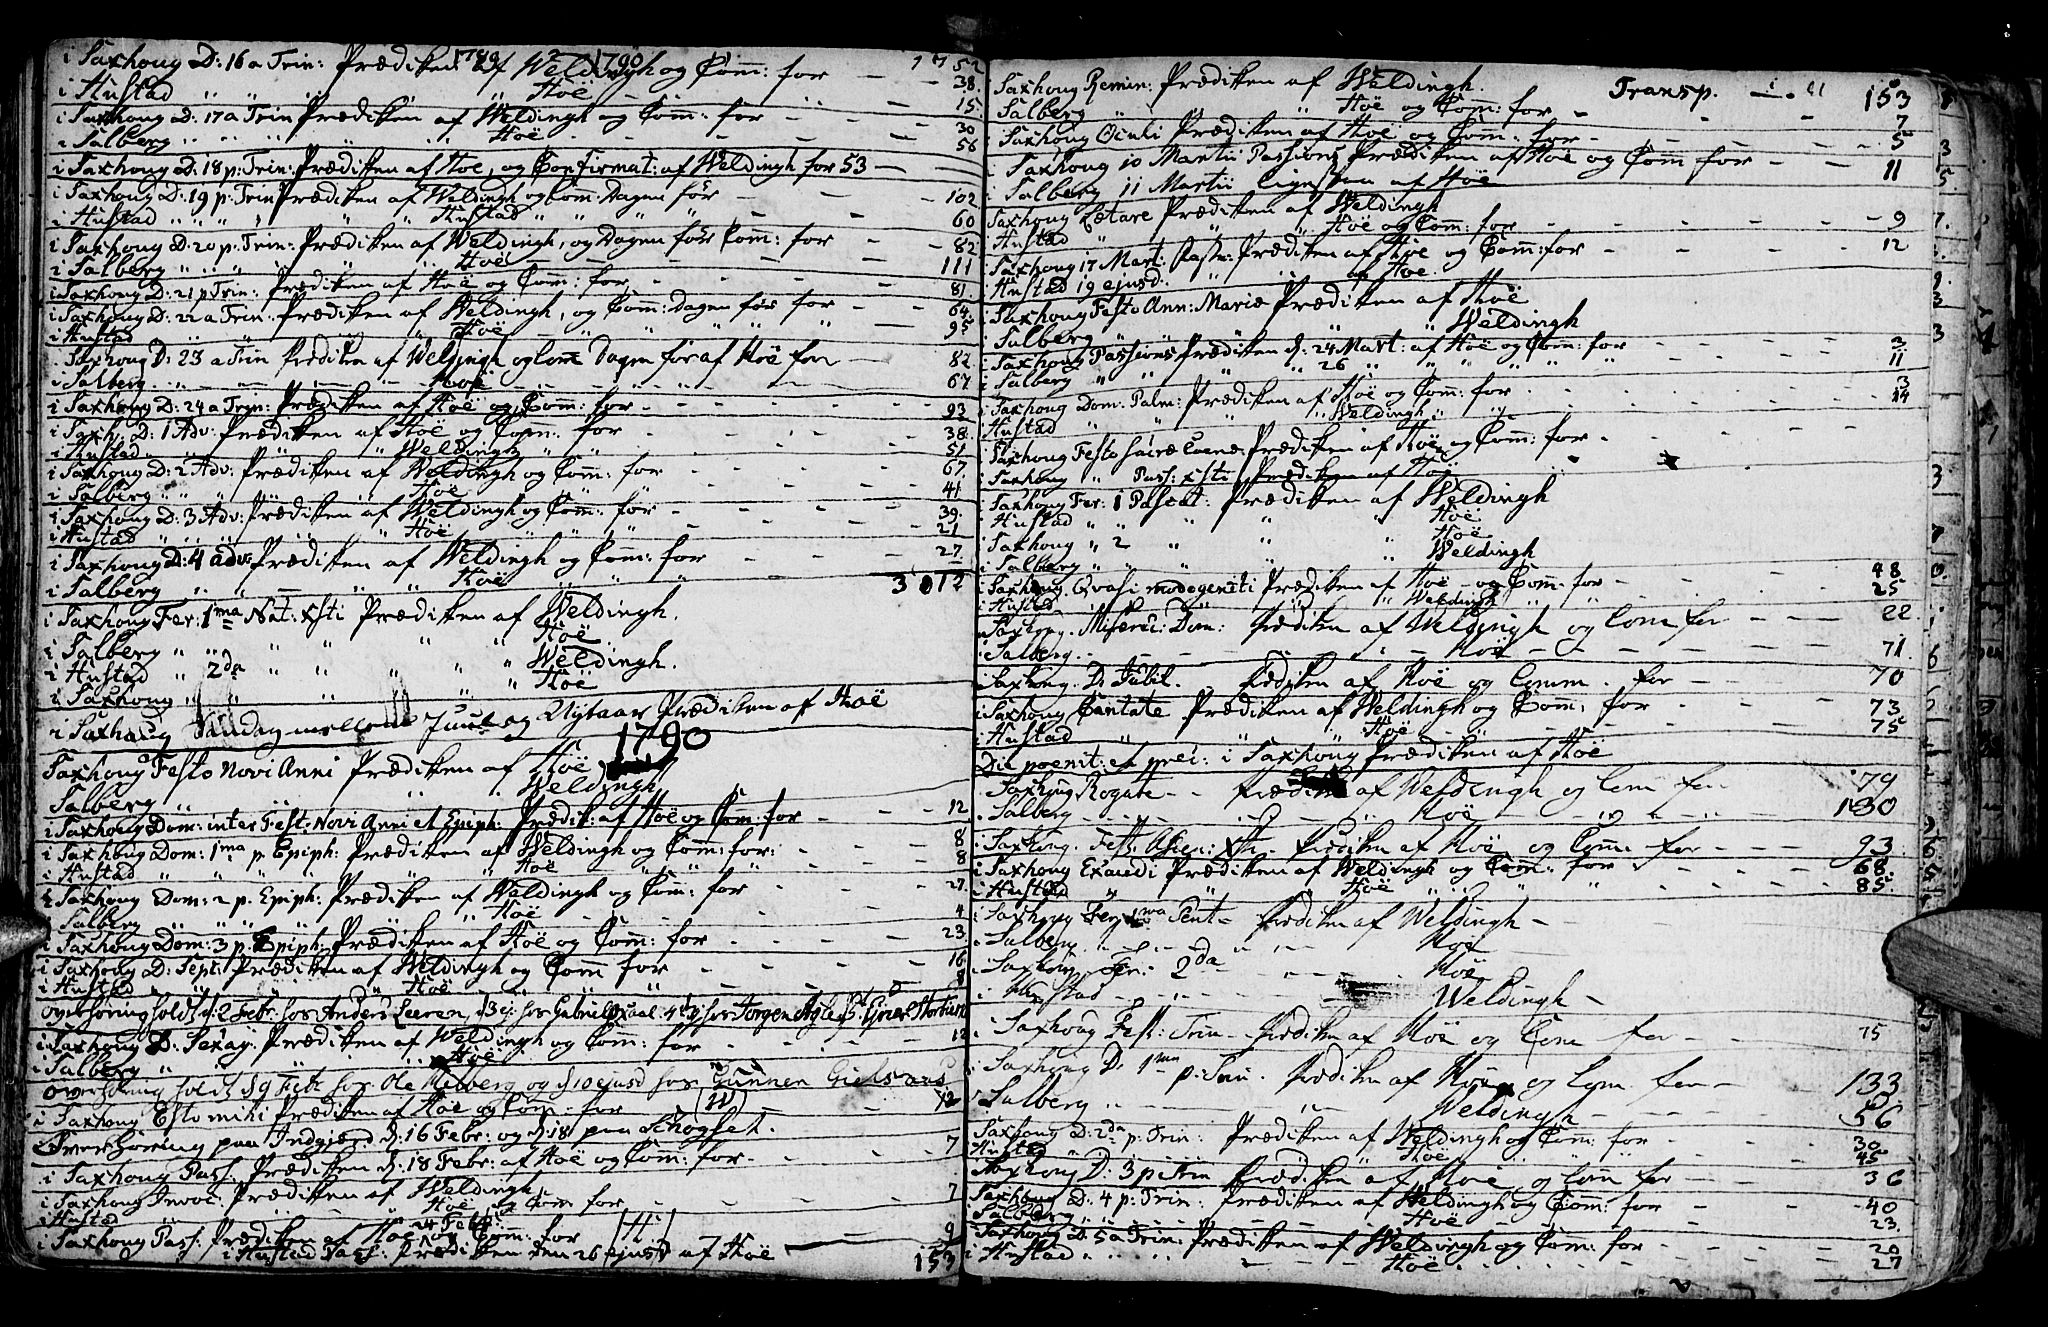 1789 1790
i Saxhoug D: 16 a Trin: Prædiken af Weldingh og Com̄: for — — 1752
i Hustad " " " " Höe — — 38
i Saxhoug D: 17 a Trin Prædiken af Weldingh og Com̄: for — — 15
i Salberg " " " " Höe — — 30
56
i Saxhoug D: 18 p: Trin: Prædiken af Höe, og Confirmat: af Weldingh for 53
i Saxhoug D: 19 p: Trin Prædiken af Weldingh og Com: Dagen för — — 102
i Hustad " " " " Hustad " " — 60
i Saxhoug D: 20 p: Trin: Prædiken af Weldingh, og Dagen för Com̄: for — — 82
i Salberg " " " " Höe — — 111
i Saxhoug D: 21 p Trin: Prædiken af Höe og Com̄: for — — 81
i Saxhoug D: 22 a Trin: Prædiken af Weldingh, og Com̄: Dagen för for — — 64
i Hustad " " Höe " " " — 95
i Saxhoug D: 23 a Trin Prædiken af Weldingh og Com Dagen för af Höe for 82
i Salberg — — Höe — — 67
i Saxhoug D: 24 a Trin: Prædiken af Höe og Com̄: for — — 93
i Saxh: D: 1 Adv: Prædiken af Höe og Com̄: for — — 38
i Hustad " " Weldingh " " — 51
i Saxhoug D: 2 Adv: Prædiken af Weldingh og Com̄: for — — 67
i Salberg " " " Höe — — 41
i Saxhoug D: 3 Adv: Prædiken af Weldingh og Com̄: for — — 39
i Hustad " " " " Höe — — 21
i Saxhoug D: 4 Adv: Prædiken af Weldingh og Com̄: for — — 27
i Salberg " " " Höe " " 3012
i Saxhoug Fer: 1ma Nat: xsti Prædiken af Weldingh.
i Salberg " " " " Höe
i Hustad " 2da " " " " Weldingh.
i Saxhoug " " " " Höe
i Saxhoug Søndag mellom Juul og Nytaar Prædiken af Höe
1790
Saxhoug Festo Novi Anni Prædiken af Höe
Salberg " " Weldingh
i Saxhoug Dom: inter Fest: Novi Anni et Epiph: Prædik: af Höe og Com̄: for — — 12
i Saxhoug Dom: 1ma p. Epiph: Prædiken af Weldingh og Com̄: for: — — 8
i Hustad " " " " Höe " — 8
i Saxhoug Dom: 2 p. Epiph: Prædiken af Weldingh og Com̄: for — — 27
i Salberg " " " Höe — — 4
i Saxhoug Dom: 3 p. Epiph: Prædiken af Höe og Com̄: for — — 23
i Saxhoug D: Sept: Prædiken af Weldingh og Com̄ for — — 16
i Hustad " " " Höe " — 8
Overhøring holdt d: 2 Febr: hos Anders Leeren, d 3 ej: hos
i Saxhoug D: Sexag: Prædiken af Weldingh og Com̄: for — — 12
i Salberg " " Höe
Overhøring holdt d 9 Febr hos Ole Helberg og d 10 ejusd hos Gunnen
i Saxhoug Esto mihi Prædiken af Höe og Com̄: for — — 12
Overhøring paa Indgjærd d: 16 Febr: og d: 18 paa
i Saxhoug Pass: Prædiken d: 18 Febr: af Höe og Com̄: for — — 7
i Saxhoug Invoc: Prædiken af Weldingh
i Hustad Höe og Com̄: for — — 7
i Saxhoug Pass: Prædiken af Höe 24 Febr: og Com̄: for — 9
i Hustad Pass: Prædiken den 26 ejusd af Höe — 153
Saxhoug Remin: Prædiken af Weldingh. Transp. — 153
Salberg " " Höe og Com̄: for — — 7
i Saxhoug Oculi Prædiken af Höe og Com̄: for — — 5
i Saxhoug 10 Martii Passions Prædiken af Höe og Com for — — 11
i Salberg 11 Martii af Höe
Saxhoug Lætare Prædiken af Weldingh
Hustad " " Höe og Com̄: for — — 9
i Saxhoug 17 Mart: Pass: Prædiken af Höe og Com̄: for — — 12
i Hustad 19 ejusd. " " af Höe.
i Saxhoug Festo Ann: Mariæ Prædiken af Höe
i Salberg " " Weldingh
i Saxhoug Passions Prædiken d: 24 Mart: af Höe og Com: for — — 3
i Salberg " " " 26 " " " " — 11
i Saxhoug Dom: Palm: Prædiken af Höe og Com̄: for — — 3
Hustad " " " Weldingh " " — 14
i Saxhoug Festo Prædiken af Höe og Com̄: for —
i Saxhoug " Pass: xsti Prædiken af Höe
i Saxhoug Fer: 1 Pascat: Prædiken af Weldingh
i Hustad " " " " Höe
i Saxhoug " 2 " " " Höe
i Salberg " " " " Weldingh
i Saxhoug. Qvasi modogeniti Prædiken af Höe og Com̄: for — — 48
i Hustad " Weldingh " — 25
i Saxhoug. Miserei: Dom: Prædiken af Weldingh og Com for — — 22
i Salberg. — — Höe — — 71
i Saxhoug. D. Jubil. Prædiken af Höe og Comm. for — 70
i Saxhoug Cantate Prædiken af Weldingh og Com̄: for — — 73
i Hustad " " Höe — — 75
Die poenit: et prec: i Saxhoug Prædiken af Höe
i Saxhoug Rogate — Prædiken af Weldingh og Com for — 79
i Salberg — — Höe — " — 130
i Saxhoug. Fest: Ascen: xti. Prædiken af Höe og Com̄ for — — 93
i Saxhoug Exaudi Prædiken af Weldingh og Com̄: for — — 68
i Hustad " " Höe " " — 85
i Saxhoug Fer 1ma Pent — Prædiken af Weldingh —
i Salberg — " — Höe
i Saxhoug Fer: 2da " — Höe
i Hustad — " — Weldingh —
i Saxhoug Fest: Trin — Prædiken af Höe og Com for — 75
i Saxhoug D. 1ma p. Trin. Prædiken af Höe og Com for — 133
i Salberg — " — Weldingh — — 56
Saxhoug D: 2da p: Trin: Prædiken af Weldingh og Com̄: for — — 30
Hustad " " Höe — — 45
i Saxhoug D: 3 p Trin Prædiken af Höe og Com for — 36
i Saxhoug D: 4 p: Trin: Prædiken af Weldingh og Com̄: for — — 40
i Salberg — — Höe — — 23
i Saxhoug D: 5 a Trin: Prædiken af Weldingh og Com̄: for — — 20
i Hustad " " — Höe — — 27